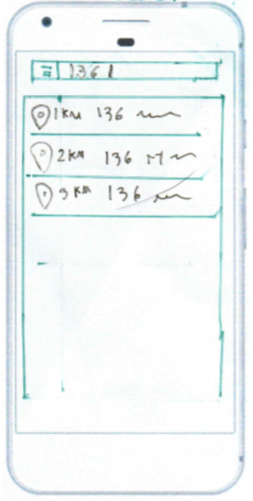 136 |
1 KM 136
2 KM 136
3 KM 136